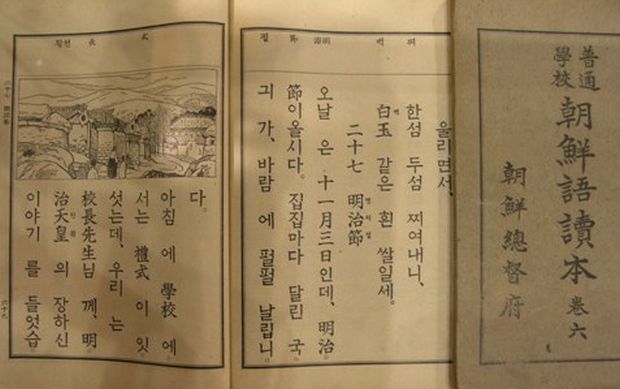 普通學校
朝鮮語讀本 卷六
朝鮮總督府
울리면서、
한섬 두섬 찌여내니、
白玉 같은 흰 쌀일세。
二十七 明治節
오날 은 十一月三日인데、明治
節이올시다。집집마다 달린 국
긔 가、바람 에 펄펄 날립니
다。
아침 에 學校 에
서는 禮式 이 잇
섯는데、우리 는
校長先生님 께、明
治天皇 의 장하신
이야기 를 들엇습
二十七 明治節
六十九